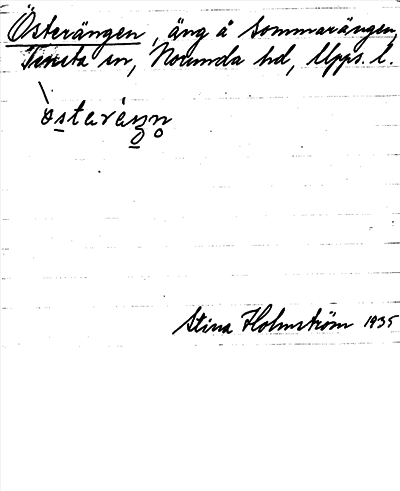 Österängen, äng å Sommarängen,
Tensta sn, Norunda hd, Upps. l.
ò̱staráŋn̥
Stina Holmström 1935